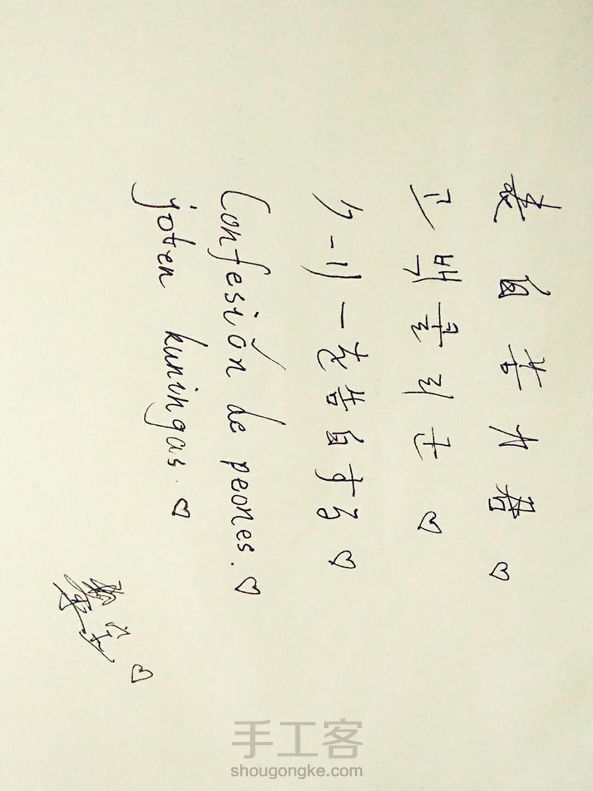 表白苦力君♡
고백쿨리군♡
クーリーを告白する♡
Confesión de peones.♡
joten kuningas.♡
手工客
shougongke.com